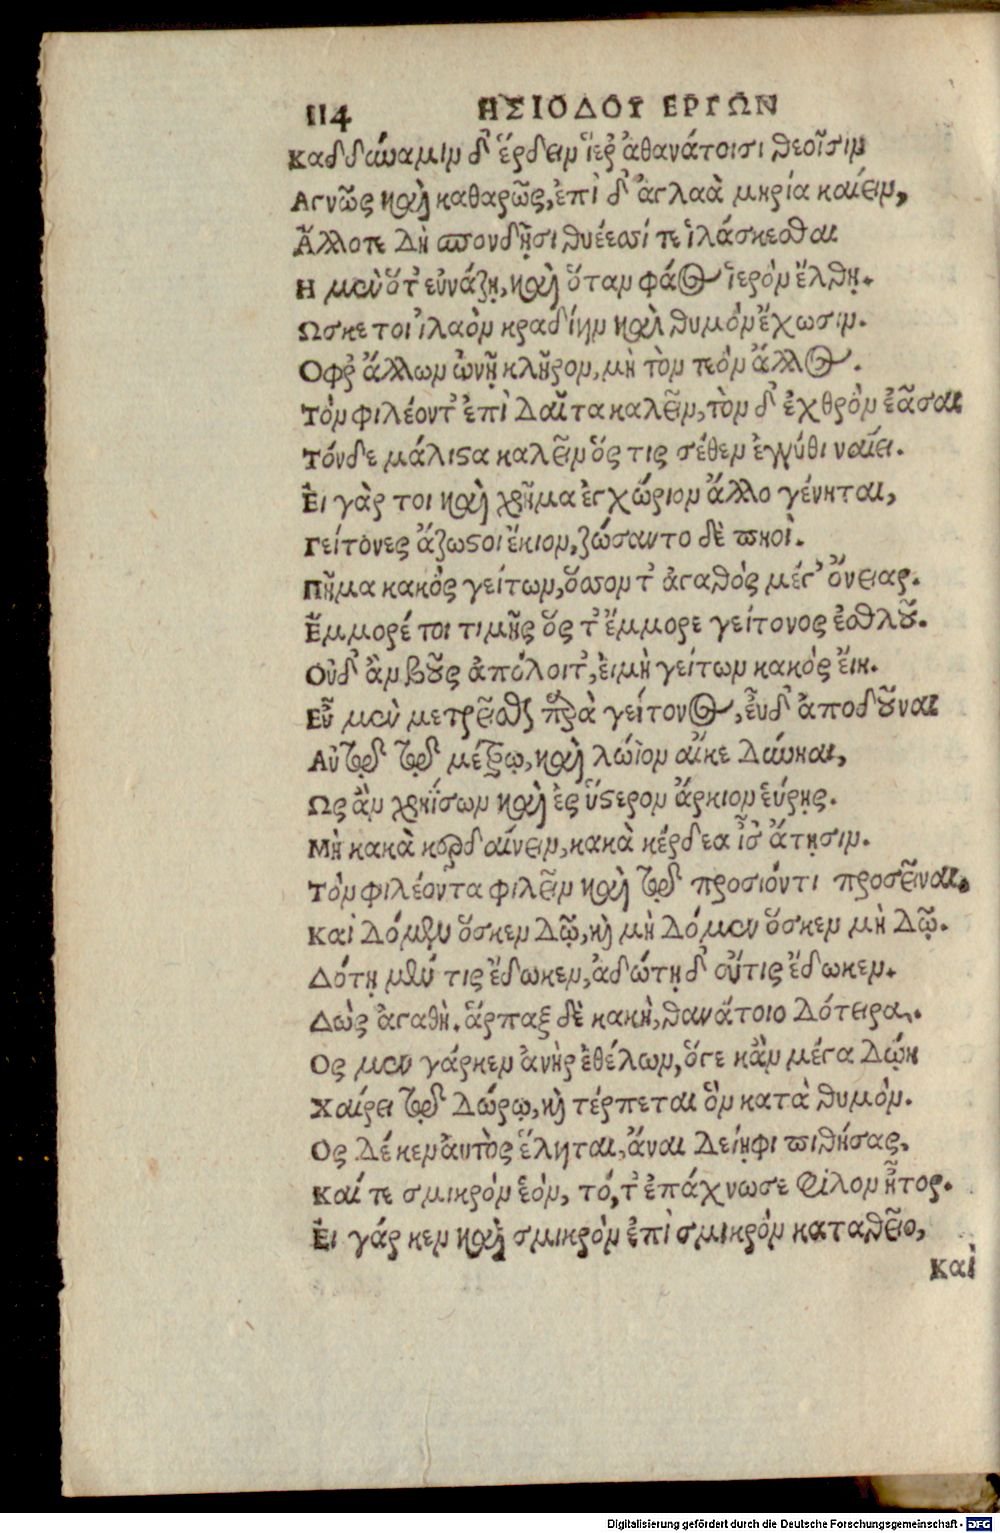 114 ΗΣΙΟΔΟΥ ΕΡΓΩΝ
Καδδύναμιν δ' ἔρδειν ἱερ' ἀθανάτοισι θεοῖσιν
Αγνῶς καὶ καθαρῶς, ἐπὶ δ' ἀγλαὰ μηρία καίειν,
Ἄλλοτε δὴ σπονδῇσι θυέεσσί τε ἱλάσκεσθαι
Η μὲν ὅτ' εὐνάζῃ, καὶ ὅταν φάος ἱερὸν ἔλθῃ.
Ως κε τοι ἵλαον κραδίην καὶ θυμὸν ἔχωσιν.
Οφρ' ἄλλων ὠνῇ κλῆρον, μὴ τὸν τεὸν ἄλλος.
Τὸν φιλέοντ' ἐπὶ δαῖτα καλεῖν, τὸν δ' ἐχθρὸν ἐᾶσαι
Τόνδε μάλιστα καλεῖν ὅς τις σέθεν ἐγγύθι ναίει.
Εἰ γὰρ τοι καὶ χρῆμα ἐγχώριον ἄλλο γένηται,
Γείτονες ἄζωστοι ἔκιον, ζώσαντο δὲ πηοὶ.
Πῆμα κακὸς γείτων, ὅσσον τ' ἀγαθὸς μέγ' ὄνειαρ.
Ἔμμορέ τοι τιμῆς ὅς τ' ἔμμορε γείτονος ἐσθλοῦ.
Οὐδ' ἂν βοῦς ἀπόλοιτ', εἰ μὴ γείτων κακὸς εἴη.
Εὖ μὲν μετρεῖσθαι παρὰ γείτονος, εὖ δ' ἀποδοῦναι
Αὐτῷ τῷ μέτρῳ, καὶ λώϊον αἴκε δύνηαι,
Ως ἂν χρηΐζων καὶ ἐς ὕστερον ἄρκιον εὕρῃς.
Μὴ κακὰ κερδαίνειν, κακὰ κέρδεα ἶσ' ἄτῃσιν.
Τὸν φιλέοντα φιλεῖν καὶ τῷ προσιόντι προσεῖναι.
Καὶ δόμεν ὅς κεν δῷ, καὶ μὴ δόμεν ὅς κεν μὴ δῷ.
Δότῃ μέν τις ἔδωκεν, ἀδώτῃ δ' οὔτις ἔδωκεν.
Δὼς ἀγαθὴ. ἅρπαξ δὲ κακὴ, θανάτοιο δότειρα.
Ος μὲν γάρ κεν ἀνὴρ ἐθέλων, ὅγε κἂν μέγα δῴη
Χαίρει τῷ δώρῳ, καὶ τέρπεται ὃν κατὰ θυμόν.
Ος δέ κεν αὐτὸς ἕληται, ἀναιδείηφι πιθήσας,
Καί τε σμικρὸν ἐόν, τό, τ' ἐπάχνωσε φίλον ἦτορ.
Εἰ γάρ κεν καὶ σμικρὸν ἐπὶ σμικρὸν καταθεῖο,
Καὶ
Digitalisierung gefördert durch die Deutsche Forschungsgemeinschaft - DFG